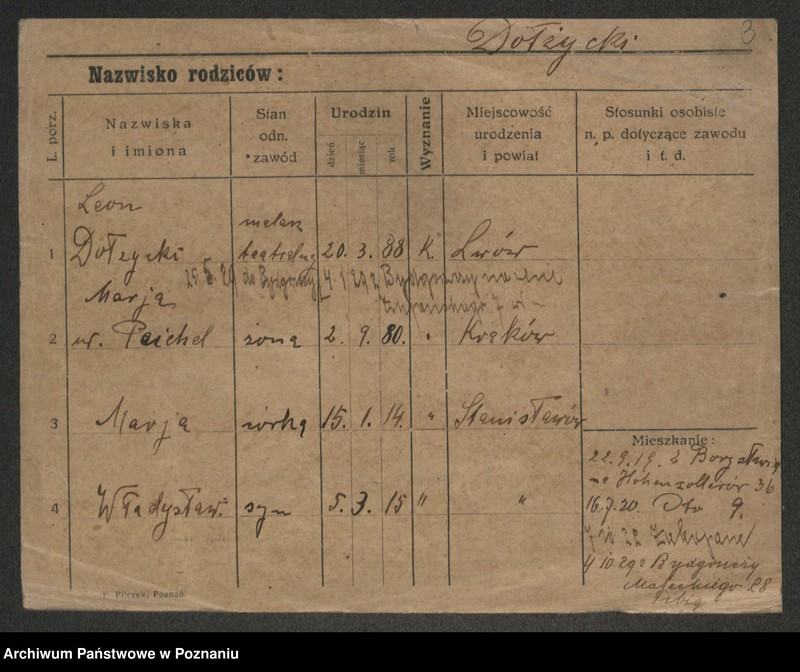 Dołżycki 3
Nazwisko rodziców:
L. porz.
Nazwiska
i imiona
Stan
odn.
zawód
Urodzin
dzień
miesiąc
rok
Wyznanie
Miejscowość
urodzenia
i powiat
Stosunki osobiste
n. p. dotyczące zawodu
i t. d.
Leon
1 Dołżycki malarz teatralny 20. 3. 88 K. Lwów
do Bydgoszczy
Marja
2 ur. Peichel żona 2. 9. 80. " Kraków
3 Marja córka 15. 1. 14. " Stanisławów
4 Władysław syn 5. 3. 15 " "
Mieszkanie:
22.9.19. z
na Hohenzollerów 36
16.7.20. Dto 9.
22 Zakopane
4 10 29 z Bydgoszczy
Małeckiego 28
F. Pilczek, Poznań
Archiwum Państwowe w Poznaniu